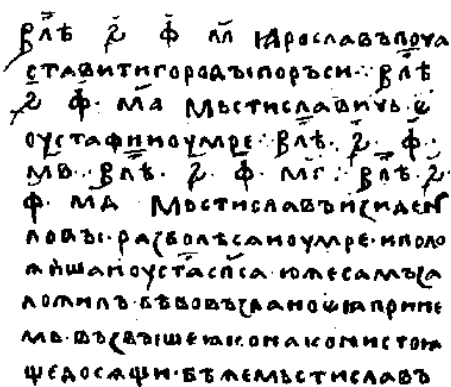 в лѣ҃ ҂ꙅ҃ ф҃ м҃ ꙗрославъ поча
ставити городъі по ръси ⁘ в лѣ҃
҂ꙅ҃ ф҃ м҃а мьстиславичь е
оустафи и оумре ⁘ в лѣ҃ ҂ꙅ҃ ф҃
м҃в в лѣ҃ ҂ꙅ҃ ф҃ м҃г ⁘ в лѣ҃ ҂ꙅ҃
ф҃ м҃д мьстиславъ изиде н
ловъі разболѣсѧ и оумре и поло
жиша и оу ст҃а сп҃са юже самъ за
ложилъ бѣ бо въздано ѥꙗ при не
мь въ звъіше ꙗко на кони стоꙗ
ще досѧщи бѣ же мьстиславъ